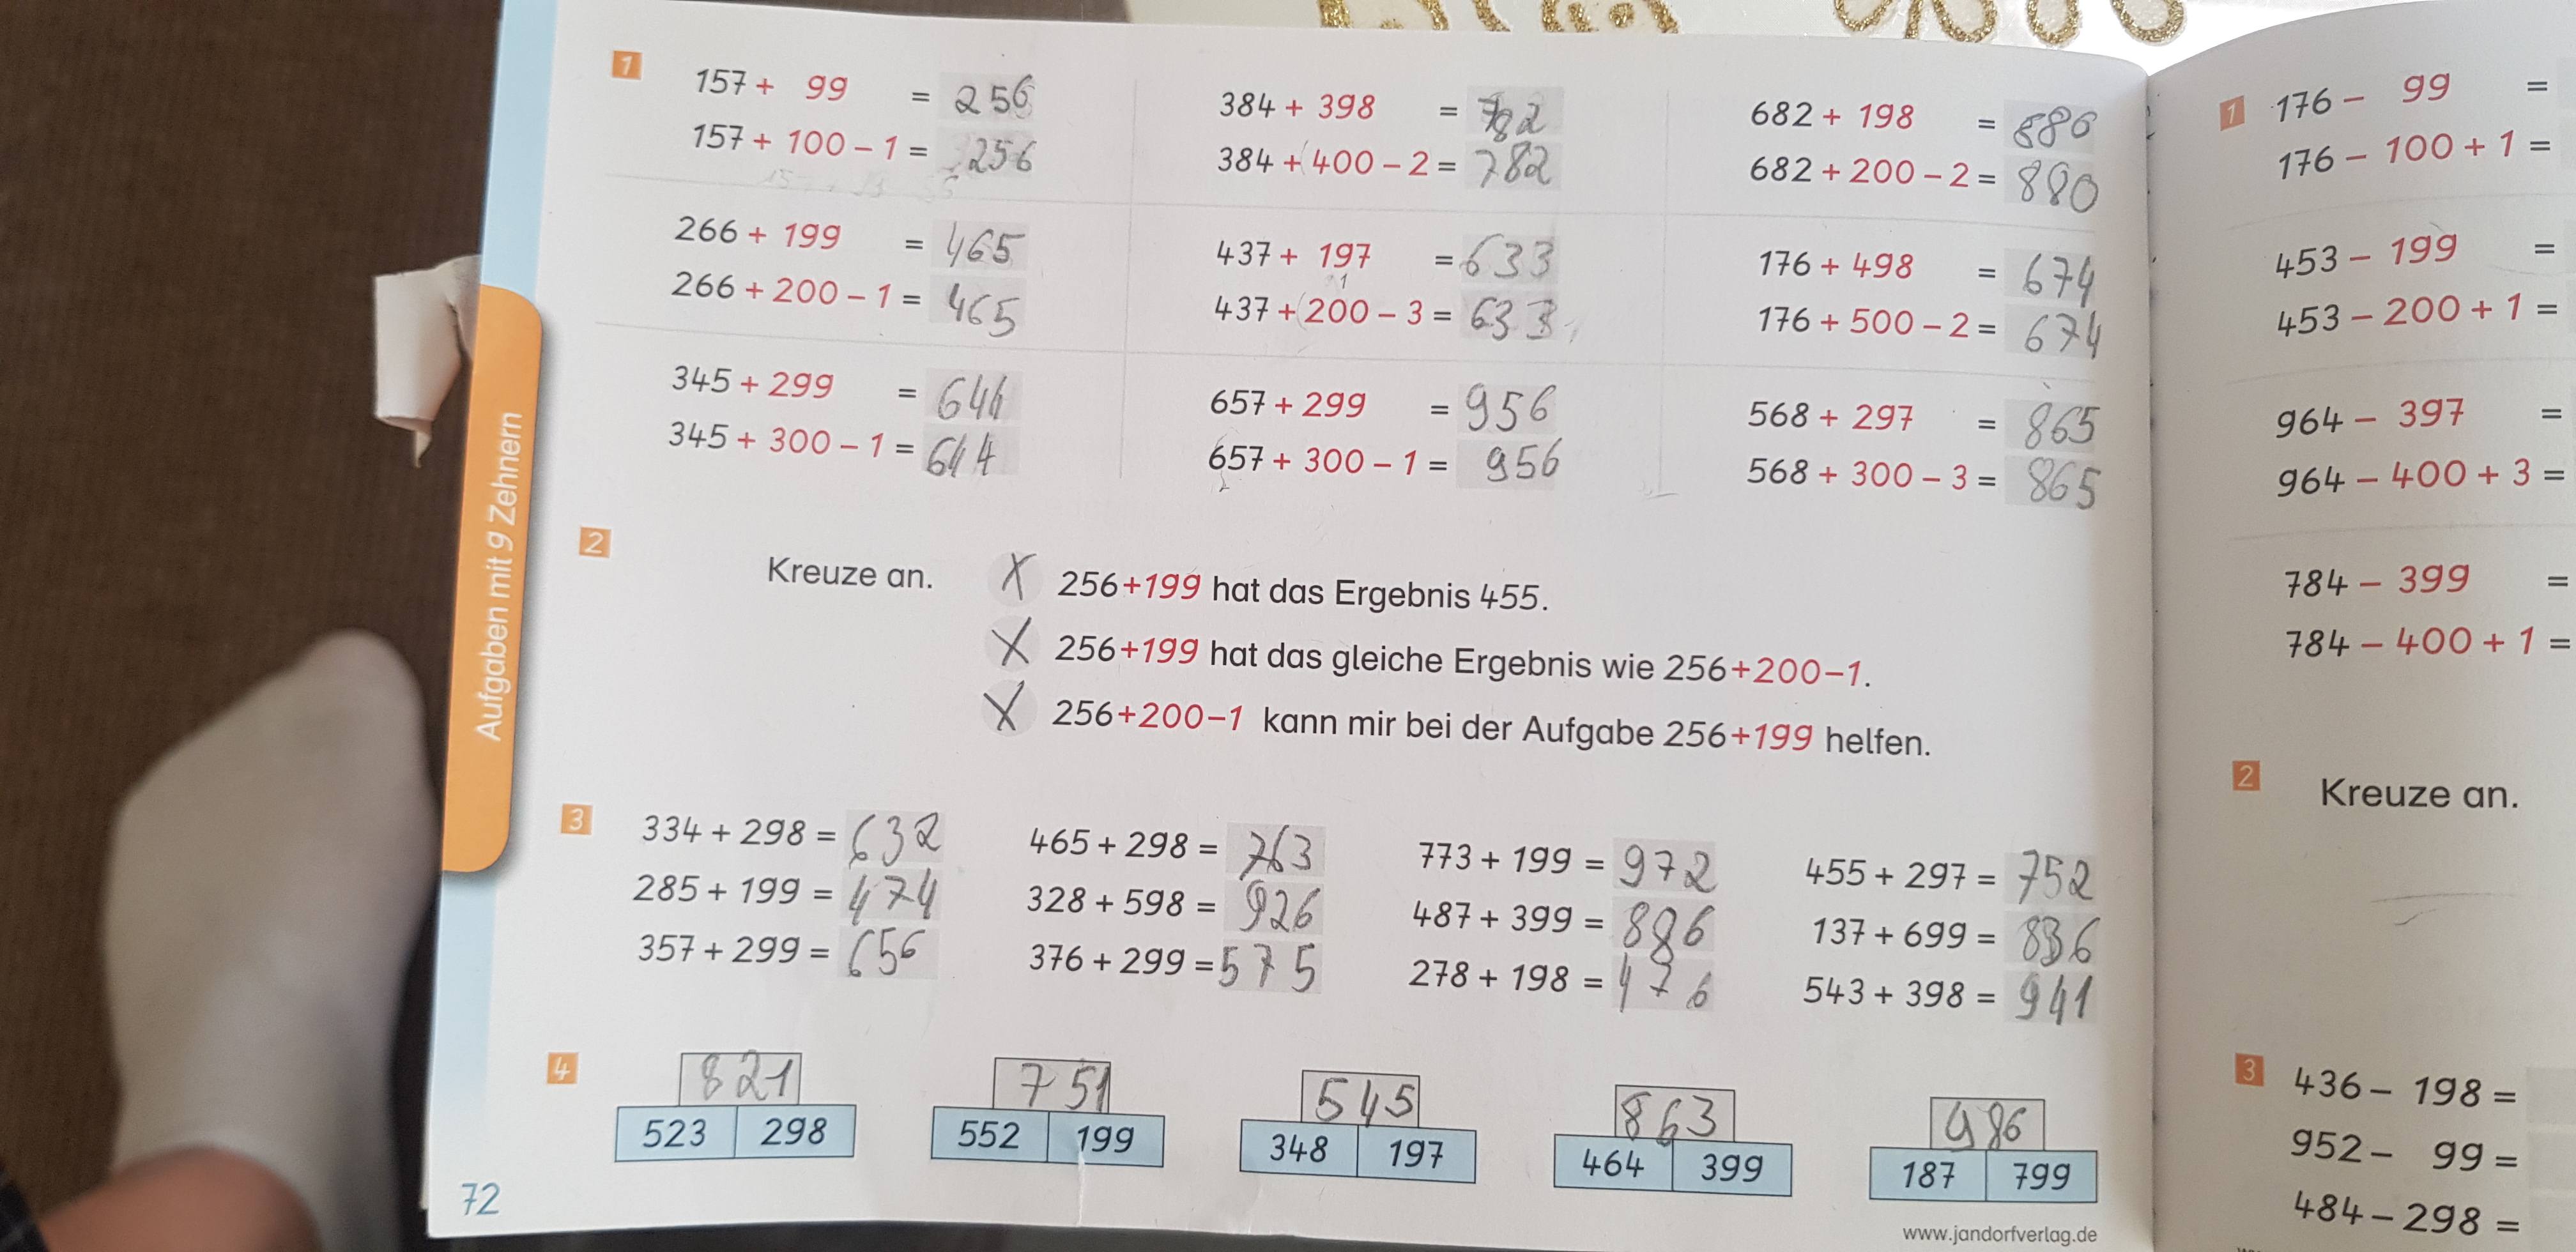 Aufgaben mit 9 Zehnern
1
157 + 99 = 256
157 + 100 – 1 = 256
266 + 199 = 465
266 + 200 – 1 = 465
345 + 299 = 644
345 + 300 – 1 = 644
384 + 398 = 782
384 + 400 – 2 = 782
437 + 197 = 633
437 + 200 – 3 = 633
657 + 299 = 956
657 + 300 – 1 = 956
682 + 198 = 880
682 + 200 – 2 = 880
176 + 498 = 674
176 + 500 – 2 = 674
568 + 297 = 865
568 + 300 – 3 = 865
2
Kreuze an.
X 256+199 hat das Ergebnis 455.
X 256+199 hat das gleiche Ergebnis wie 256+200–1.
X 256+200–1 kann mir bei der Aufgabe 256+199 helfen.
3
334 + 298 = 632
285 + 199 = 474
357 + 299 = 656
465 + 298 = 763
328 + 598 = 926
376 + 299 = 575
773 + 199 = 972
487 + 399 = 886
278 + 198 = 476
455 + 297 = 752
137 + 699 = 836
543 + 398 = 941
4
821
523 298
751
552 199
545
348 197
863
464 399
986
187 799
72
www.jandorfverlag.de
1
176 – 99 =
176 – 100 + 1 =
453 – 199 =
453 – 200 + 1 =
964 – 397 =
964 – 400 + 3 =
784 – 399 =
784 – 400 + 1 =
2
Kreuze an.
3
436 – 198 =
952 – 99 =
484 – 298 =